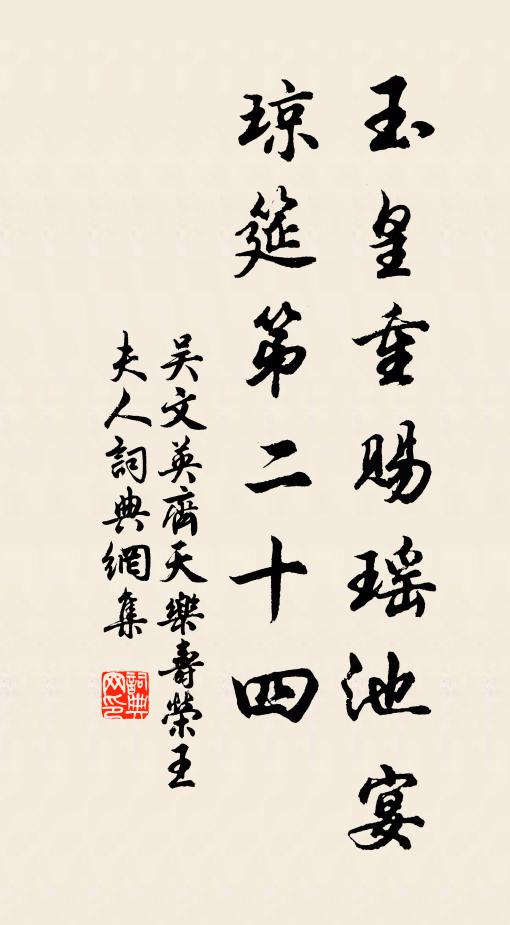 玉皇重賜瑤池宴
瓊筵第二十四
吴文英齊天樂壽榮王
夫人詞典網集
詞典
网印